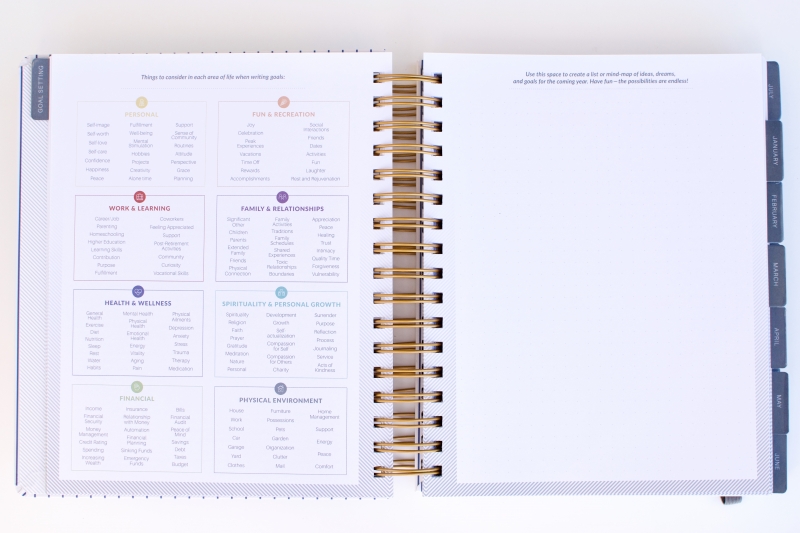 GOAL SETTING
Things to consider in each area of life when writing goals:
PERSONAL
Self image
Self worth
Self love
Self care
Confidence
Happiness
Peace
Fulfillment
Well being
Mental
Stimulation
Hobbies
Purpose
Creativity
Alone time
Support
Sense of
Community
Routines
Attitude
Perspective
Grace
Planning
FUN & RECREATION
Joy
Celebration
Peak
Experiences
Vacations
Time Off
Rewards
Accomplishments
Social
Interactions
Friends
Dates
Activities
Fun
Laughter
Rest and Rejuvenation
WORK & LEARNING
Career/Job
Parenting
Homeschooling
Higher Education
Learning Skills
Contribution
Purpose
Fulfillment
Coworkers
Feeling Appreciated
Support
Post-Retirement
Activities
Community
Curiosity
Vocational Skills
FAMILY & RELATIONSHIPS
Significant
Other
Children
Parents
Extended
Family
Friends
Physical
Connection
Family
Activities
Traditions
Family
Schedules
Shared
Experiences
Toxic
Relationships
Boundaries
Appreciation
Peace
Healing
Trust
Intimacy
Quality Time
Forgiveness
Vulnerability
HEALTH & WELLNESS
General
Health
Exercise
Diet
Nutrition
Sleep
Rest
Water
Habits
Mental Health
Physical
Health
Emotional
Health
Energy
Vitality
Aging
Pain
Physical
Ailments
Depression
Anxiety
Stress
Trauma
Therapy
Medication
SPIRITUALITY & PERSONAL GROWTH
Spirituality
Religion
Faith
Prayer
Gratitude
Meditation
Nature
Personal
Development
Growth
Self
Actualization
Compassion
for Self
Compassion
for Others
Charity
Surrender
Purpose
Reflection
Process
Journaling
Service
Acts of
Kindness
FINANCIAL
Income
Financial
Security
Money
Management
Credit Rating
Spending
Increasing
Wealth
Insurance
Relationship
with Money
Automation
Financial
Planning
Sinking Funds
Emergency
Funds
Bills
Financial
Audit
Peace of
Mind
Savings
Debt
Taxes
Budget
PHYSICAL ENVIRONMENT
House
Work
School
Car
Garage
Yard
Clothes
Furniture
Possessions
Pets
Garden
Organization
Clutter
Mail
Home
Management
Support
Energy
Peace
Comfort
Use this space to create a list or mind-map of ideas, dreams,
and goals for the coming year. Have fun—the possibilities are endless!
JULY
JANUARY
FEBRUARY
MARCH
APRIL
MAY
JUNE